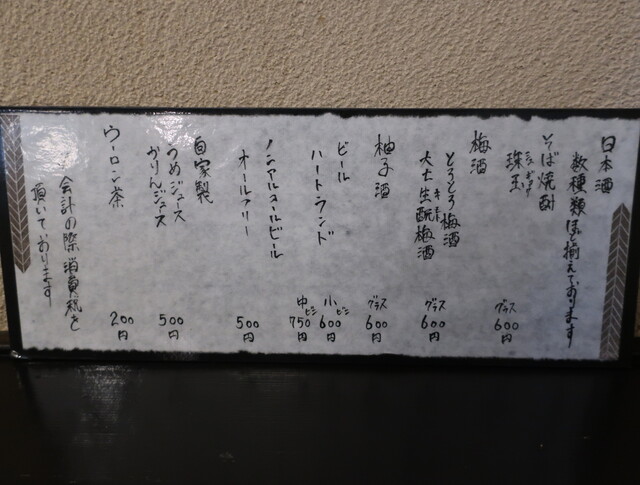 日本酒
数種類ほど揃えております
そば焼酎
珠玉
グラス
600円
梅酒
とろとろ梅酒
大古酒 生酛梅酒
グラス
600円
柚子酒
グラス
600円
ビール
ハートランド
小ビン
600円
中ビン
750円
ノンアルコールビール
オールフリー
500円
自家製
うめジュース
かりんジュース
500円
ウーロン茶
200円
会計の際消費税を
頂いております